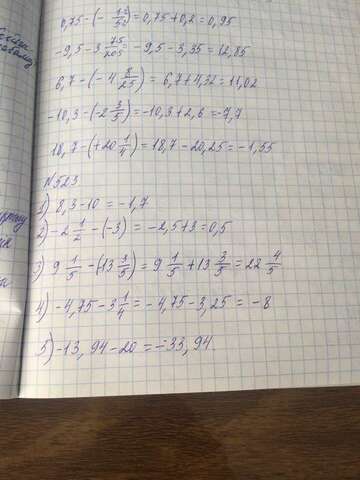 0,75-(- )=0,75+0,2=0,95
-9,5-3 75/ = -9,5-3,35=12,85
6,7-(-4 8/25) = 6,7+4,32=11,02
-10,3-(-2 3/5)=-10,3+2,6=-7,7
18,7-(+20 1/4)=18,7-20,25=-1,55
№523
1) 8,3-10 = -1,7
2) -2 1/2 -(-3) = -2,5+3=0,5
3) 9 1/5 -(13 3/5)= 9 1/5 +13 3/5 = 22 4/5
4) -4,75-3 1/4 = -4,75-3,25 = -8
5) -13,94-20 = -33,94.